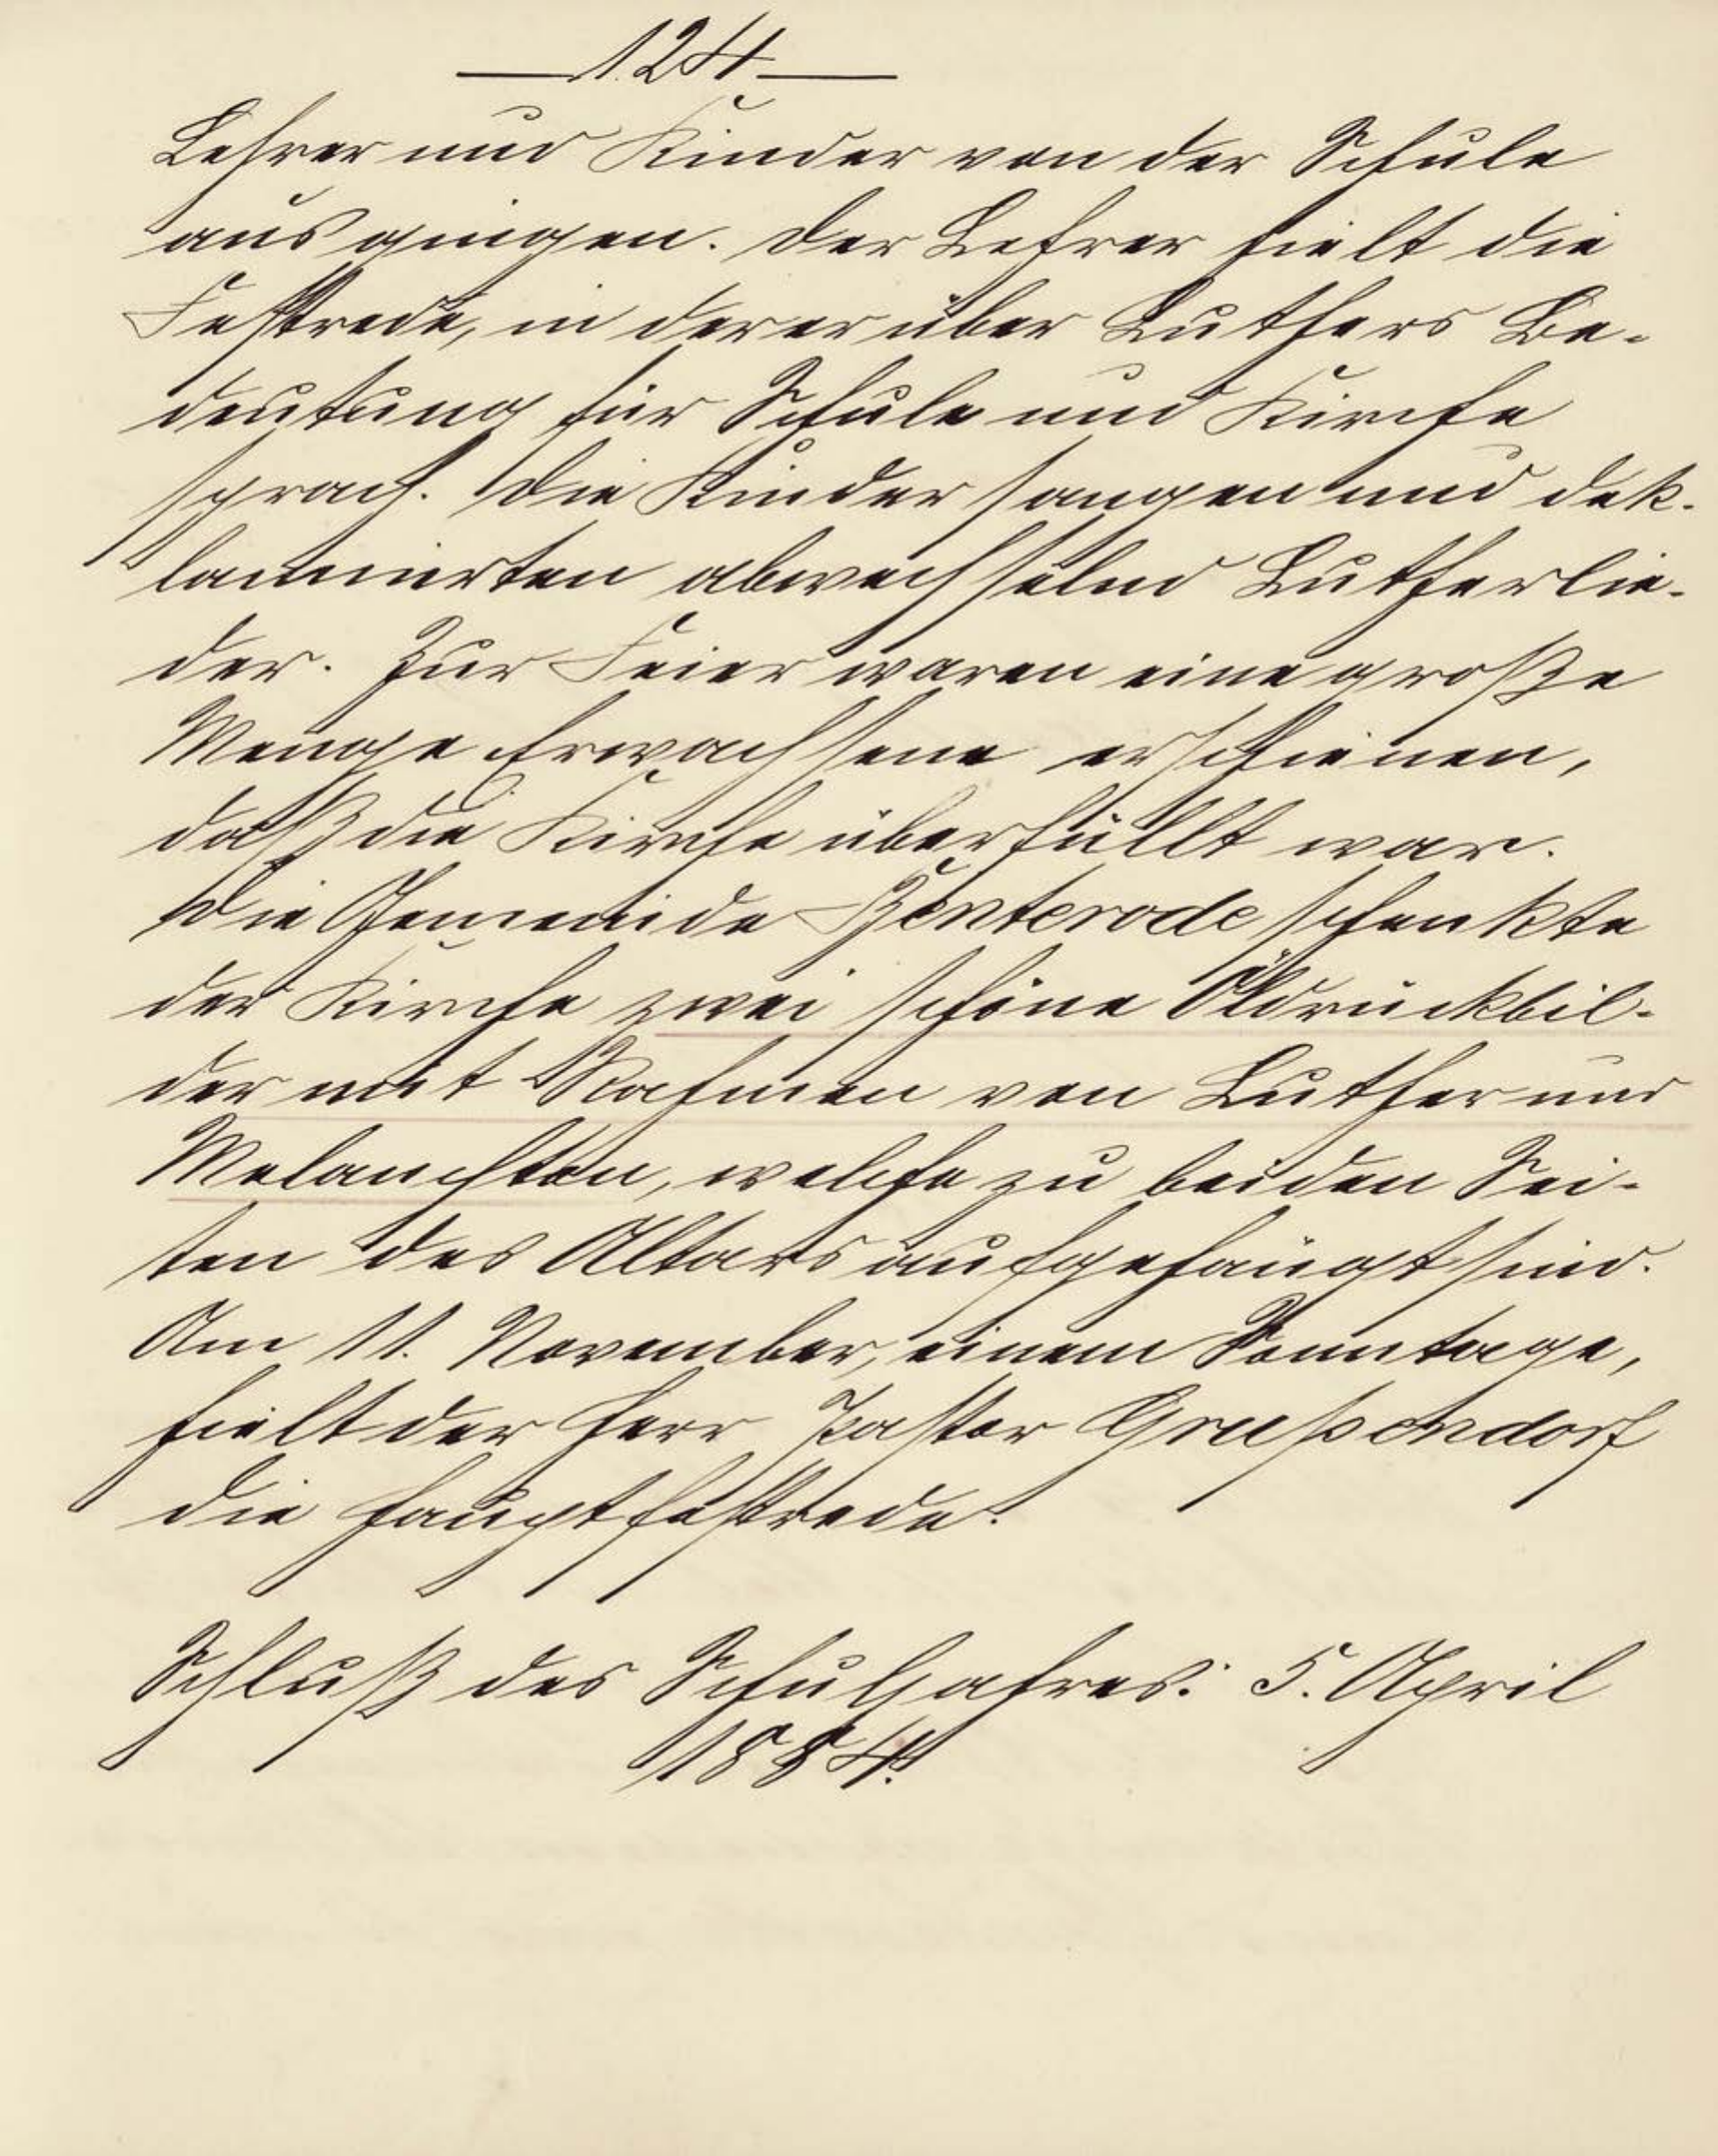 124
Lehrer und Kinder von der Schule
aus gingen. Der Lehrer hielt die
Festrede, in der er über Luthers Be-
deutung für Schule und Kirche
sprach. Die Kinder sangen und dek-
lamierten abwechselnd Lutherlie-
der. Zur Feier waren eine große
Menge Erwachsene erschienen,
daß die Kirche überfüllt war.
Die Gemeinde Benterode schenkte
der Kirche zwei schöne Öldruckbil-
der mit Rahmen von Luther und
Melanchton, welche zu beiden Sei-
ten des Altars aufgehängt sind.
Am 11. November, einem Sonntage,
hielt der Herr Pastor Grußendorf
die Hauptfestrede.
Schluß des Schuljahres: 5. April
1884.